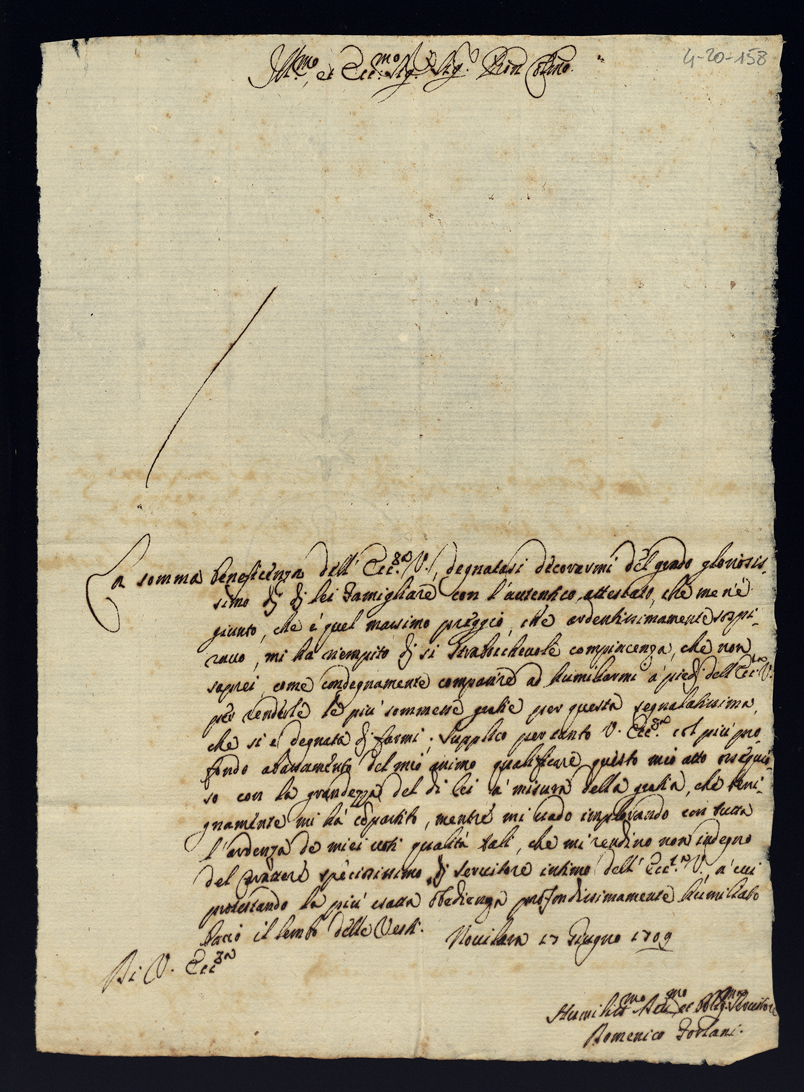 4-20-158
Ill.mo et Ecc.mo Sig.r Sig.r Pron Col.mo
La somma beneficenza dell' Ecc.za V., degnatasi decorarmi del grado gloriosis-
simo di di lei Famigliare con l'autentico attestato, che me n'é
giunto, che é quel massimo preggio, che ardentissimamente sospi-
ravo, mi ha riempito di si strabichevole compiacenza, che non
saprei, come condegnamente comparire ad humiliarmi a' piedi dell' Ecc.za V.
per renderle le più sommesse gratie per questa segnalatissima,
che si é degnata di farmi. Supplico per tanto V. Ecc.za col più pro-
fondo abassamento del mio animo qualificare questo mio atto ossequio-
so con la grandezza del di Lei a' misura della gratia, che beni-
gnamente mi há cōpartito, mentre mi vado implorando con tutta
l'ardenza de miei voti qualità tali, che mi rendino non indegno
del carattere speciosissimo di servitore intimo dell' Ecc.za V., a' cui
protestando la più esatta obedienza profondissimamente humiliato
bacio il lembo delle Vesti.
Novilara 17 Giugno 1709
Di V. Ecc.za
Humiliss.mo Dev.mo et Oblig.mo Servitore
Domenico